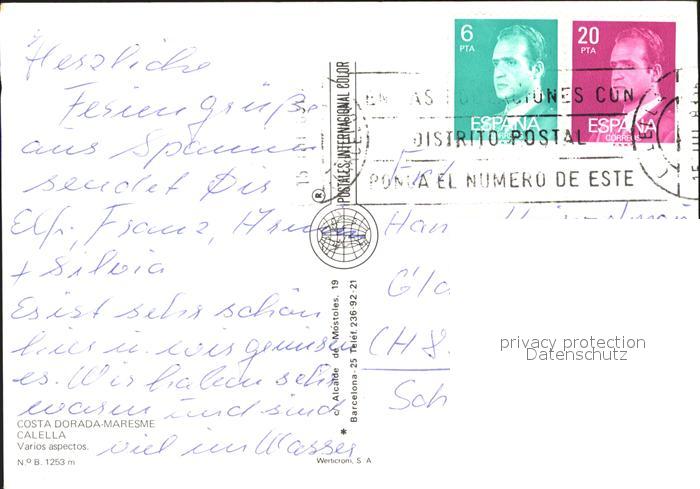 Herzliche
Feriengrüße
aus Spanien
sendet Dir
Elfr., Franz,
+ Silvia
Es ist sehr schön
hier u. wir genießen
es. Wir haben sehr
warm und sind
viel im Wasser
COSTA DORADA-MARESME
CALELLA
Varios aspectos.
N.º B. 1253 m
POSTALES INTERNACIONAL COLOR
R
c/ Alcalde de Móstoles, 19
Barcelona-25 Teléf. 236-92-21
*
Werticroni, S. A.
6
PTA
ESPAÑA
20
PTA
ESPAÑA
CORREOS
EN LAS CIONES CON
DISTRITO POSTAL
PONGA EL NUMERO DE ESTE
Han
(CH 8.
Sch
privacy protection
Datenschutz